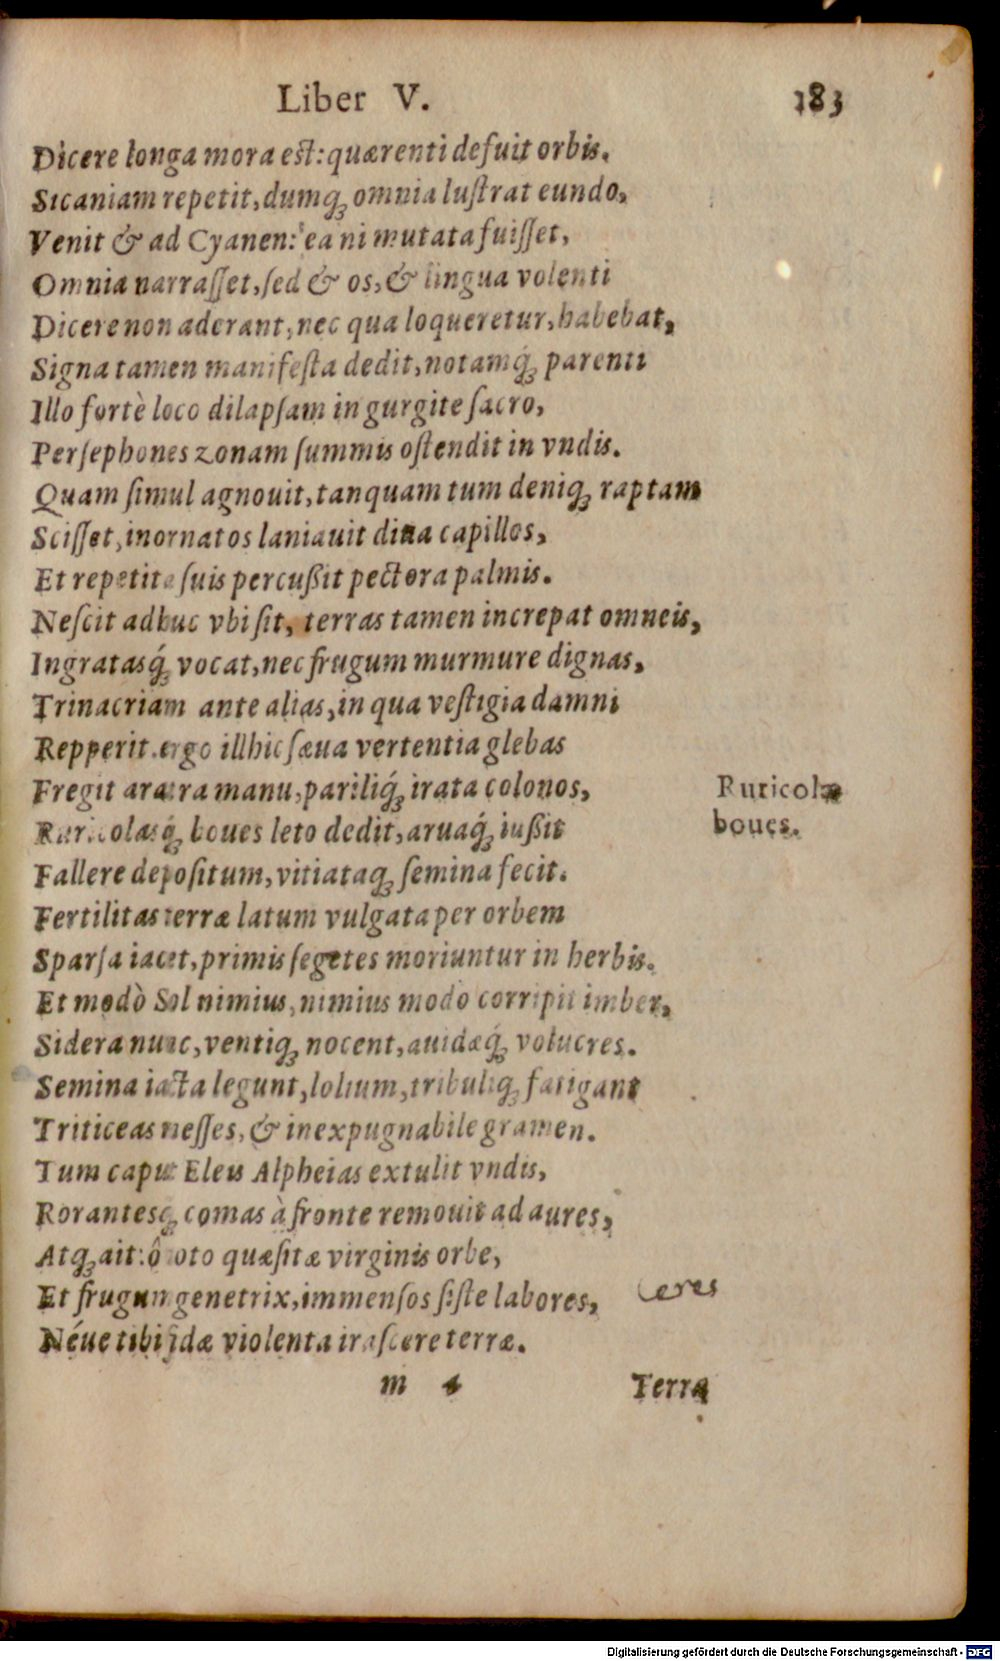 Liber V. 183
Dicere longa mora est: quærenti defuit orbis.
Sicaniam repetit, dumq́; omnia luſtrat eundo,
Venit & ad Cyanen: ea ni mutata fuiſſet,
Omnia narraſſet, ſed & os, & lingua volenti
Dicere non aderant, nec qua loqueretur, habebat,
Signa tamen manifeſta dedit, notamq́; parenti
Illo fortè loco dilapſam in gurgite ſacro,
Perſephones zonam ſummis oſtendit in vndis.
Quam ſimul agnouit, tanquam tum deniq; raptam
Sciſſet, inornatos laniauit diua capillos,
Et repetita ſuis percußit pectora palmis.
Neſcit adhuc vbi ſit, terras tamen increpat omneis,
Ingratasq́; vocat, nec frugum murmure dignas,
Trinacriam ante alias, in qua veſtigia damni
Repperit. ergo illhic ſæua vertentia glebas
Fregit aratra manu, pariliq́; irata colonos,
Ruricolasq́; boues leto dedit, aruaq́; iußit
Ruricolæ
boues.
Fallere depoſitum, vitiataq; ſemina fecit.
Fertilitas terræ latum vulgata per orbem
Sparſa iacet, primis ſegetes moriuntur in herbis.
Et modò Sol nimius, nimius modò corripit imber,
Sidera nunc, ventiq; nocent, auidæq́; volucres.
Semina iacta legunt, lolium, tribuliq; fatigant
Triticeas meſſes, & inexpugnabile gramen.
Tum caput Eleis Alpheias extulit vndis,
Rorantesq; comas à fronte remouit ad aures,
Atq; ait: ô toto quæſitæ virginis orbe,
Et frugum genetrix, immenſos ſiſte labores,
Ceres
Néue tibi fidæ violenta iraſcere terræ.
m 4 Terra
Digitalisierung gefördert durch die Deutsche Forschungsgemeinschaft - DFG